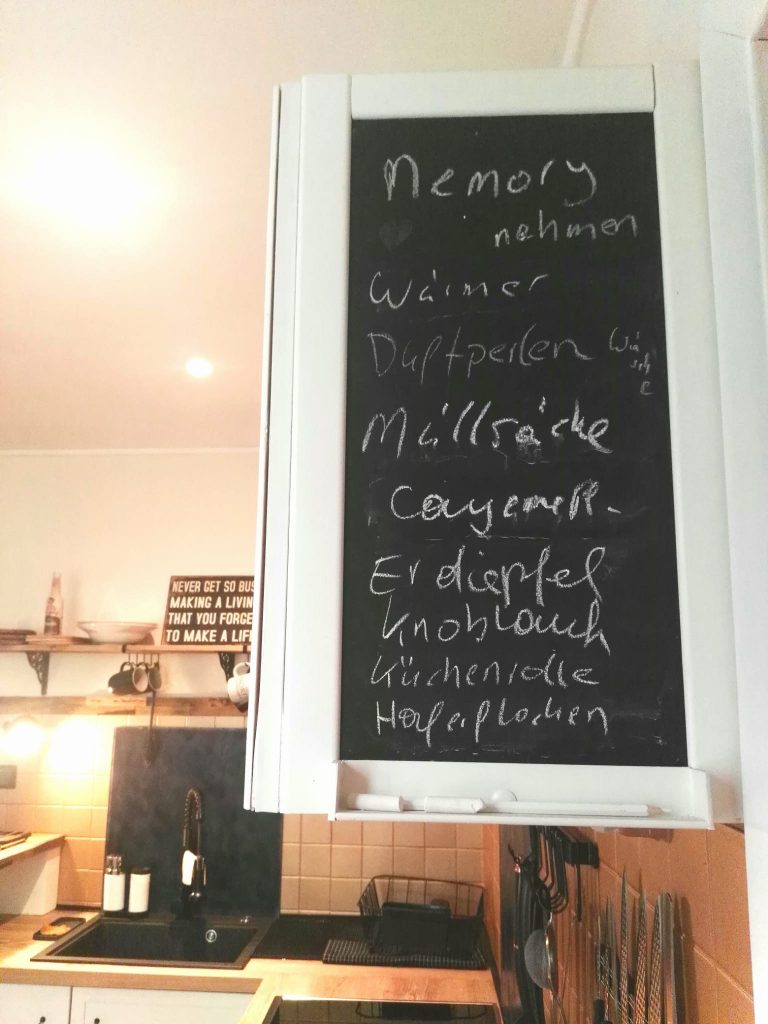 Memory
nehmen
Wärmer
Duftperlen Wäsche
Müllsäcke
CayennePf.
Erdäpfel
Knoblauch
Küchenrolle
Haferflocken
NEVER GET SO BUS
MAKING A LIVIN
THAT YOU FORGE
TO MAKE A LIFE